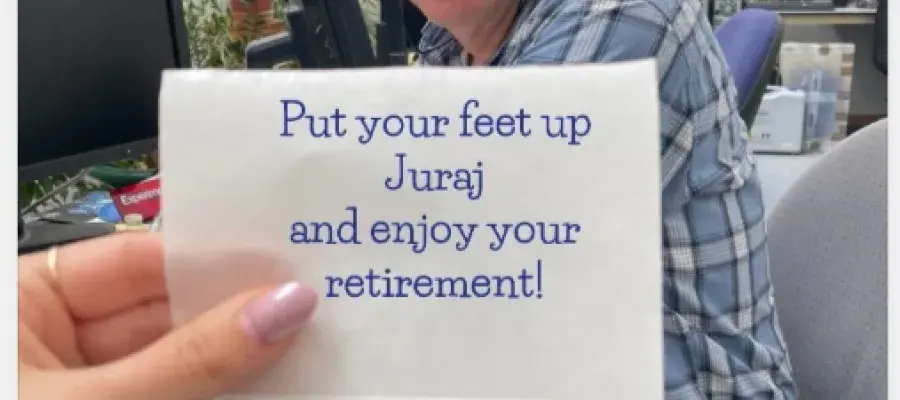 Put your feet up
Juraj
and enjoy your
retirement!